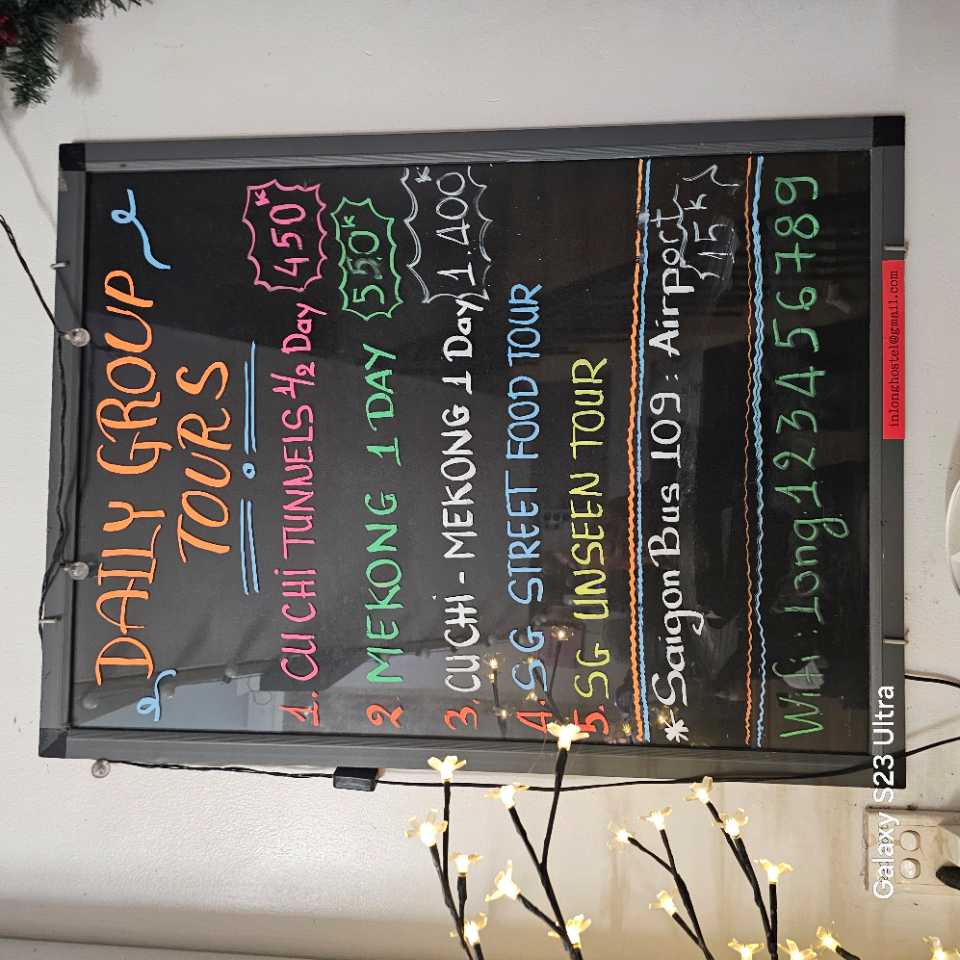 DAILY GROUP
TOURS
1. CU CHI TUNNELS 1/2 Day 450K
2 MEKONG 1 DAY 550K
3. CUCHI - MEKONG 1 Day 1.400K
4. SG STREET FOOD TOUR
5. SG UNSEEN TOUR
* Saigon Bus 109 : Airport 15K
Wifi : Long 123456789
inlonghostel@gmail.com
Galaxy S23 Ultra